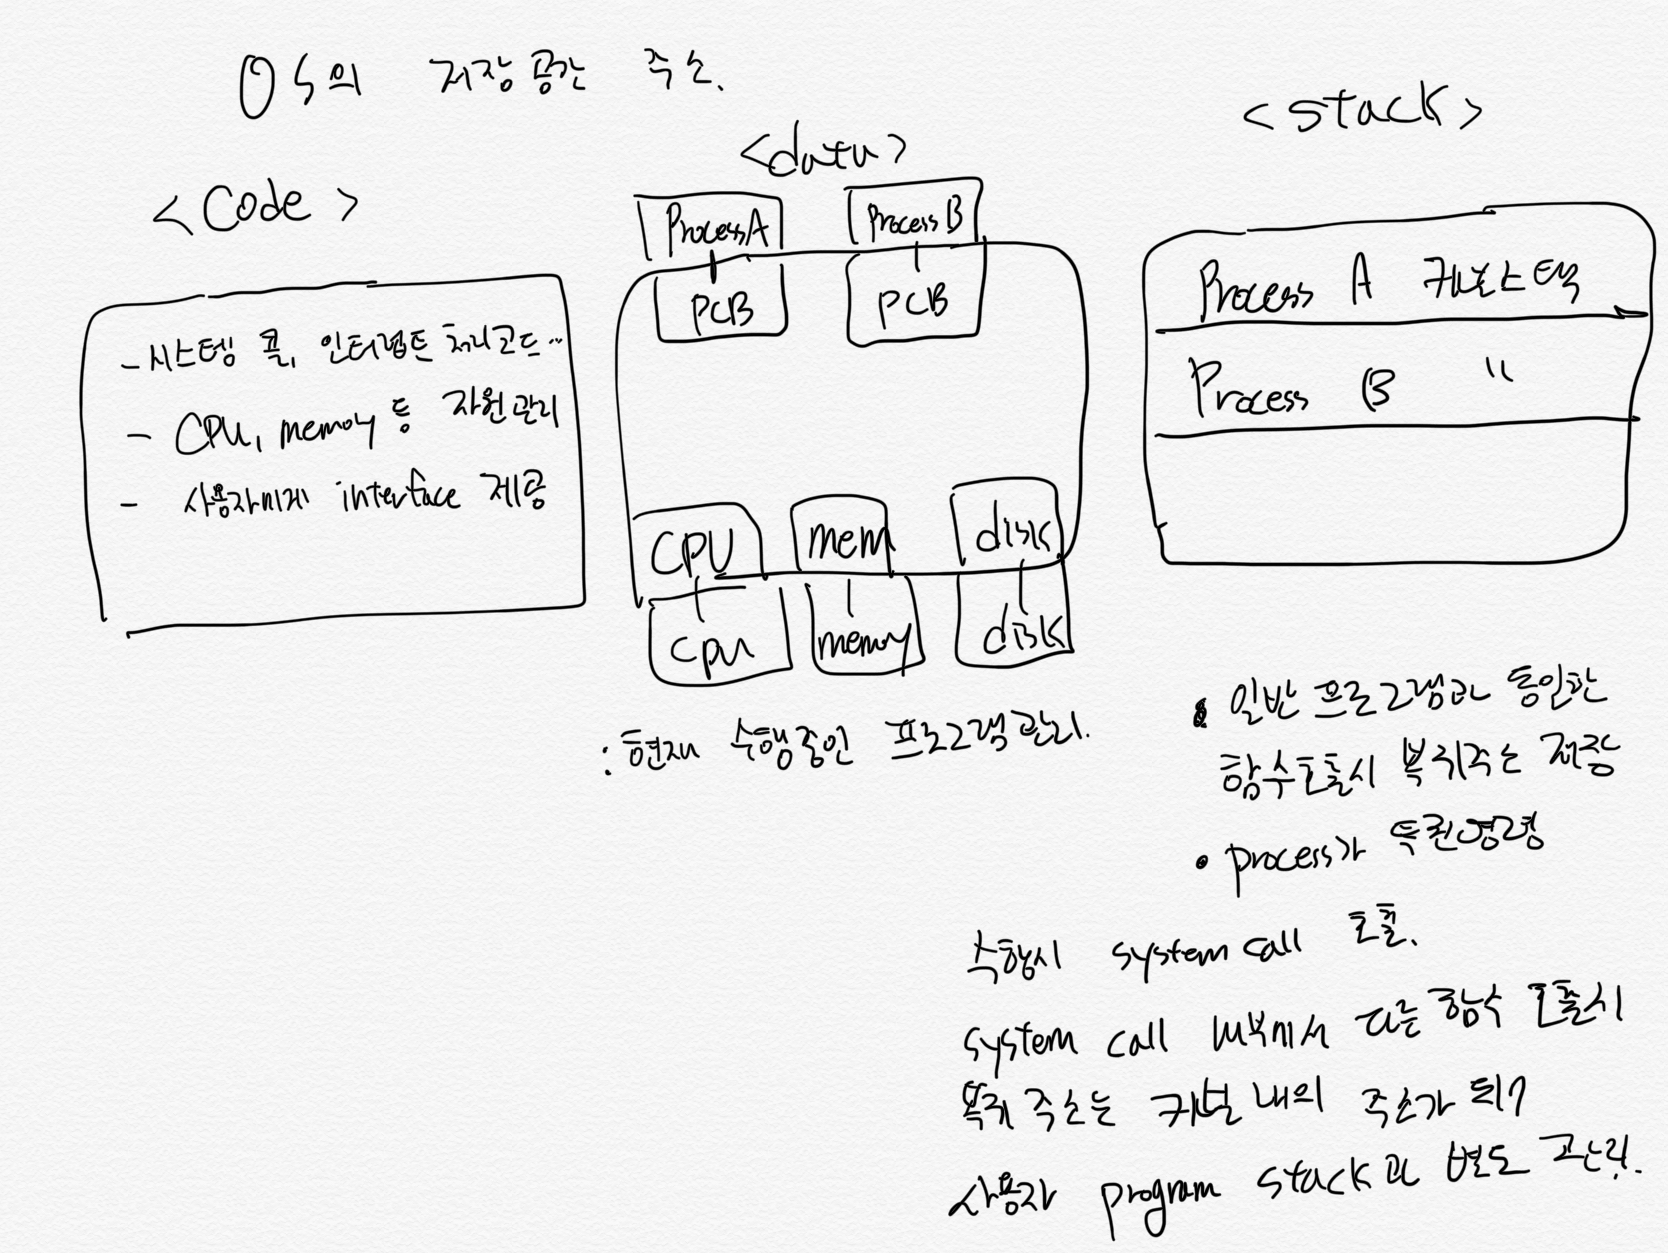 OS의 저장공간 주소.
<Code>
- 시스템 콜, 인터럽트 처리코드...
- CPU, memory 등 자원관리
- 사용자에게 interface 제공
<data>
Process A
Process B
PCB
PCB
CPU
mem
disk
cpu
memory
disk
: 현재 수행중인 프로그램관리.
<stack>
Process A 커널스택
Process B "
• 일반 프로그램과 동일한
함수호출시 복귀주소 저장
• process가 특권명령
수행시 system call 호출.
system call 내부에서 다른 함수 호출시
복귀 주소는 커널 내의 주소가 되어
사용자 program stack과 별도 관리.